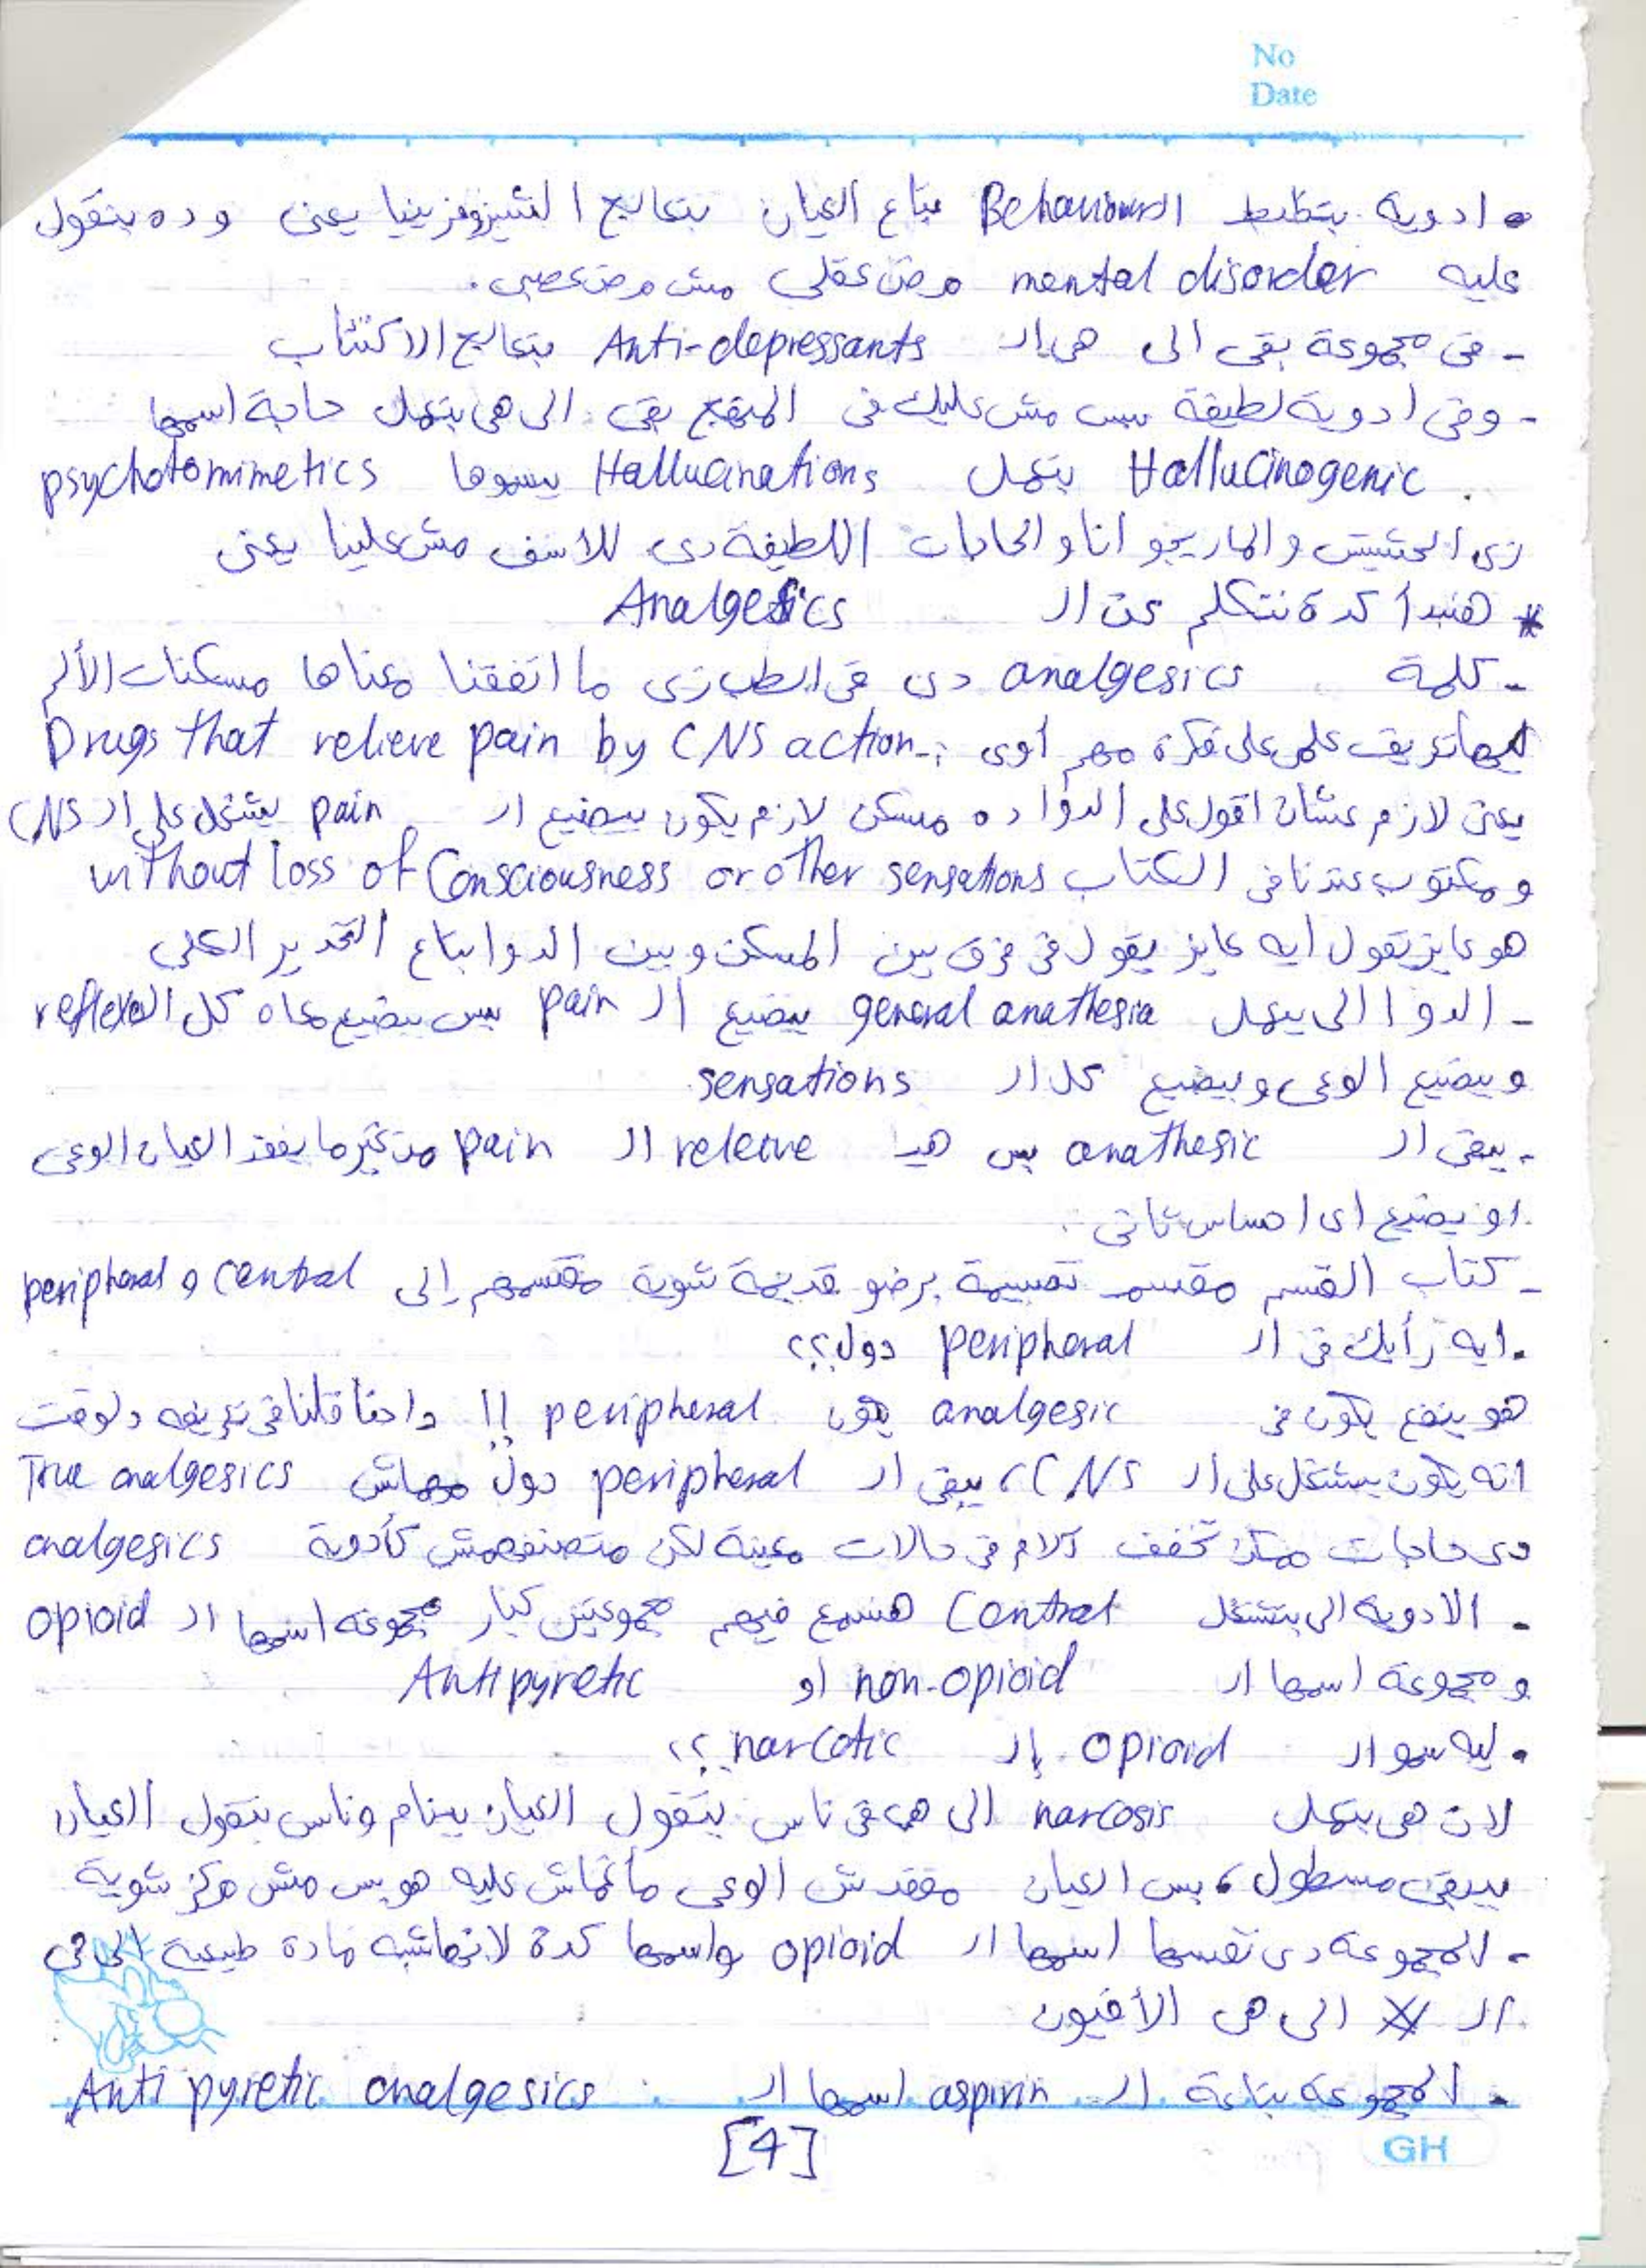 No
Date
• ادوية بتظبط الـ Behaviour بتاع العيان بتعالج الشيزوفرينيا يعنى وده بنقول
عليه mental disorder مرض عقلى مش مرض عصبى.
- فى مجموعة بقى الى هى الـ Anti-depressants بتعالج الاكتئاب
- وفى ادوية لطيفة بس مش عليك فى المنهج بقى الى هى بتعمل حاجة اسمها
Hallucinogenic بتعمل Hallucinations بيسموها psychotomimetics
زى الحشيش والماريجوانا والحاجات اللطيفة دى للاسف مش علينا يعنى
* هنبدأ كدة نتكلم عن الـ Analgesics
- كلمة analgesics دى فى الطب زى ما اتفقنا معناها مسكنات الألم
ليها تعريف علمى على فكرة مهم أوى :- Drugs that relieve pain by CNS action
يعنى لازم عشان اقول على الدوا ده مسكن لازم يكون بيضيع الـ pain يشتغل على الـ CNS
ومكتوب عندنا فى الكتاب without loss of Consciousness or other sensations
هو عايز تقول ايه عايز يقول فى فرق بين المسكن وبين الدوا بتاع التخدير الكلى
- الدوا الى بيعمل general anathesia بيضيع الـ pain بس بيضيع معاه كل الـ reflexes
وبيضيع الوعى وبيضيع كل الـ sensations
- يبقى الـ anathesic بس هيـ releave الـ pain من غير ما يفقد العيان الوعى
او يضيع اى احساس تانى.
- كتاب القسم مقسم تقسيمة برضو قديمة شوية مقسمهم إلى central و peripheral
. ايه رأيك فى الـ peripheral دول؟؟
هو ينفع يكون فى analgesic يكون peripheral !! واحنا قلنا فى تعريفه دلوقت
انه يكون بيشتغل على الـ CNS، يبقى الـ peripheral دول مهماش True analgesics
دى حاجات ممكن تخفف آلام فى حالات معينة لكن متصنفهمش كأدوية analgesics
. الادوية الى بتشتغل Central هنسمع فيهم مجموعتين كبار مجموعة اسمها الـ opioid
ومجموعة اسمها الـ non-opioid او Antipyretic
. ليه سموا الـ opioid بالـ narcotic ؟؟
لان هى بتعمل narcosis الى هى فى ناس بتقول العيان بينام وناس بتقول العيان
بيبقى مسطول، بس العيان مفقدش الوعى مأغماش عليه هو بس مش مركز شوية
- المجموعة دى نفسها اسمها الـ opioid واسمها كدة لانها شبه مادة طبيعية الى فى
الـ الى هى الأفيون
. المجموعة بتاعة الـ aspirin اسمها الـ Anti pyretic analgesics
[4]
GH